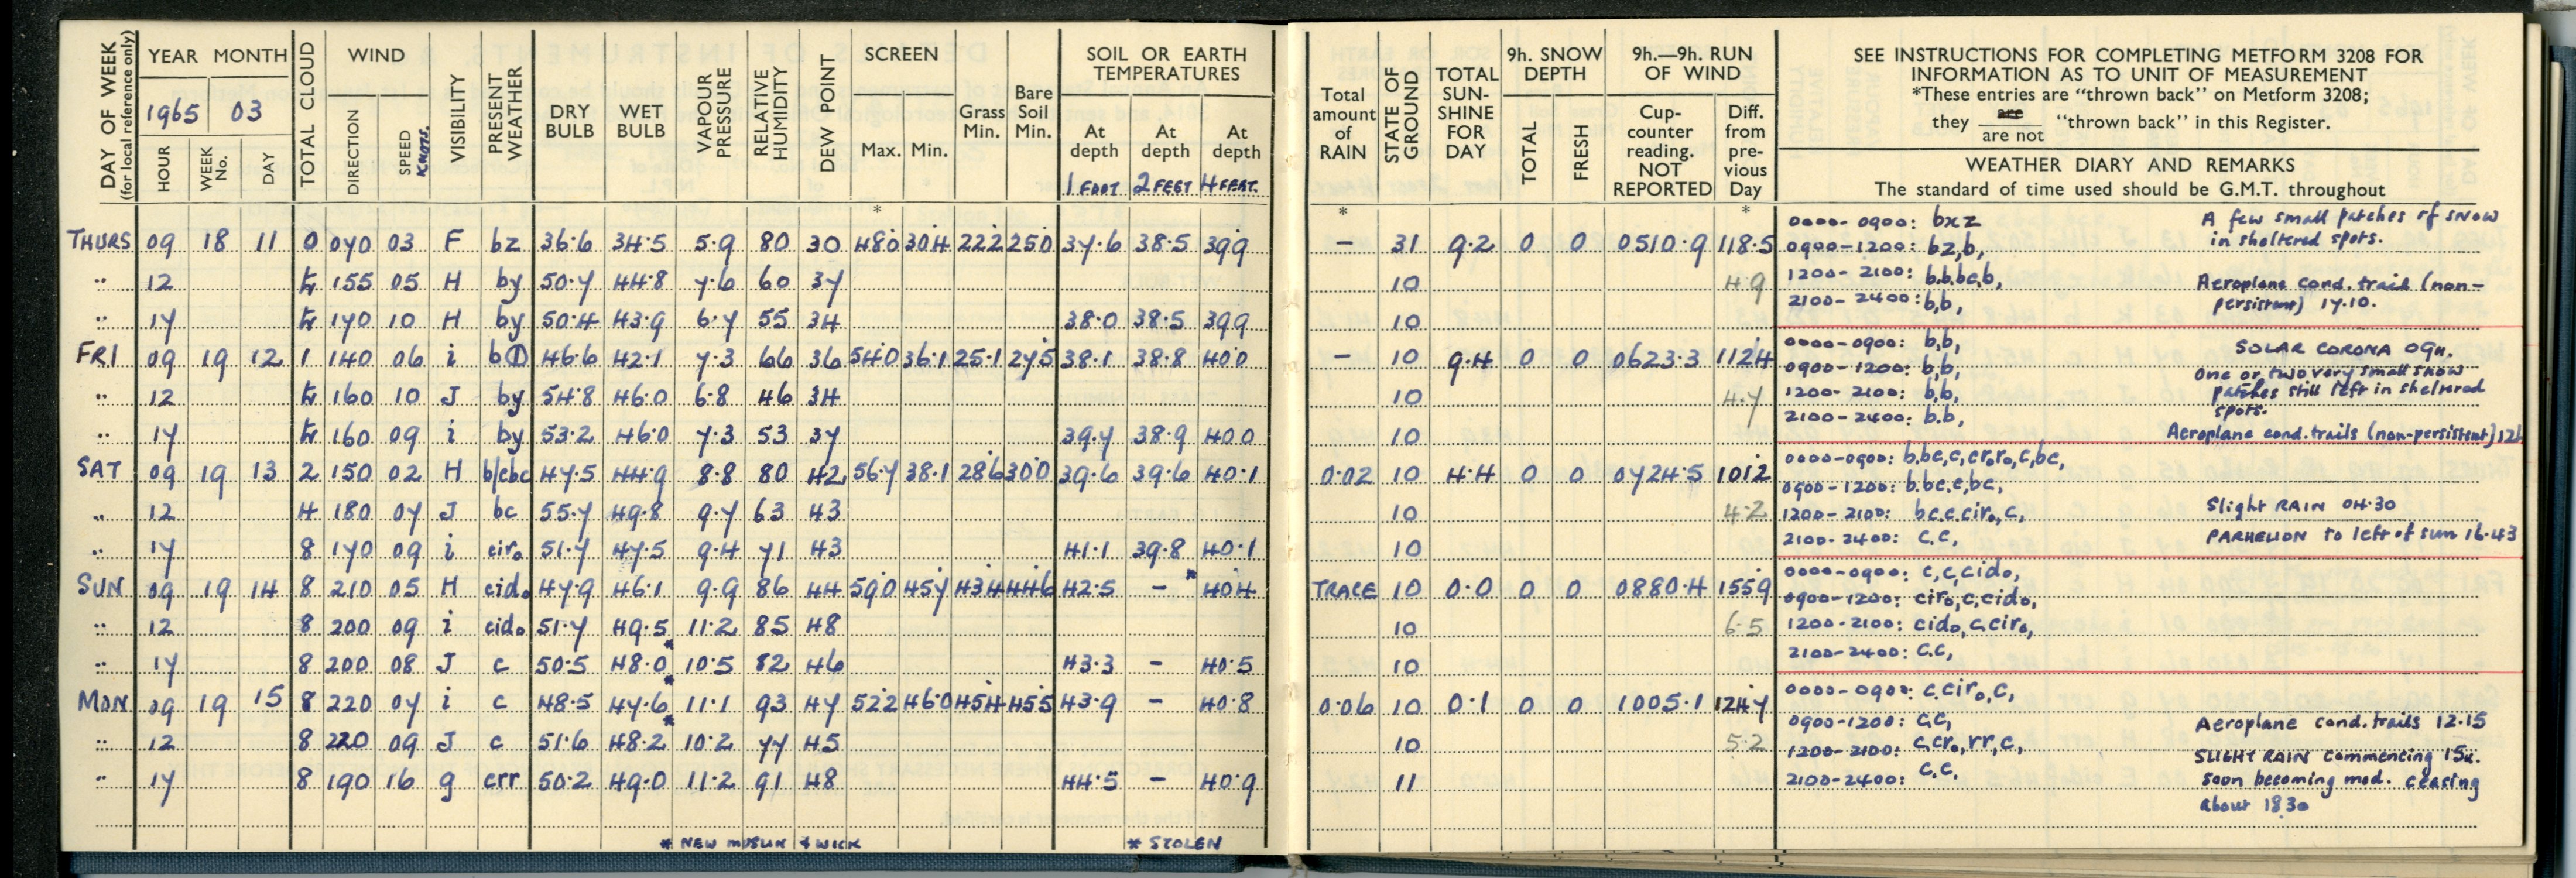 DAY OF WEEK (for local reference only) YEAR MONTH TOTAL CLOUD WIND VISIBILITY PRESENT WEATHER DRY BULB WET BULB VAPOUR PRESSURE RELATIVE HUMIDITY DEW POINT SCREEN SOIL OR EARTH TEMPERATURES
1965 03 DIRECTION SPEED KNOTS. Max. Min. Grass Min. Bare Soil Min. At depth At depth At depth
HOUR WEEK No. DAY 1 FOOT 2 FEET 4 FEET.
*
THURS 09 18 11 0 070 03 F bz 36.6 34.5 5.9 80 30 48.0 30.4 22.2 25.0 37.6 38.5 39.9
" 12 155 05 H by 50.7 44.8 7.6 60 37
" 17 170 10 H by 50.4 43.9 6.7 55 34 38.0 38.5 39.9
FRI 09 19 12 1 140 06 i b① 46.6 42.1 7.3 66 36 54.0 36.1 25.1 27.5 38.1 38.8 40.0
" 12 160 10 J by 54.8 46.0 6.8 46 34
" 17 160 09 i by 53.2 46.0 7.3 53 37 39.7 38.9 40.0
SAT 09 19 13 2 150 02 H b/cbc 47.5 44.9 8.8 80 42 56.7 38.1 28.6 30.0 39.6 39.6 40.1
" 12 4 180 07 J bc 55.7 49.8 9.7 63 43
" 17 8 170 09 i cir₀ 51.7 47.5 9.4 71 43 41.1 39.8 40.1
SUN 09 19 14 8 210 05 H cid₀ 47.9 46.1 9.9 86 44 59.0 45.7 43.4 44.6 42.5 – * 40.4
" 12 8 200 09 i cid₀ 51.7 49.5* 11.2 85 48
" 17 8 200 08 J c 50.5 48.0* 10.5 82 46 43.3 – 40.5
MON 09 19 15 8 220 07 i c 48.5 47.6* 11.1 93 47 52.2 46.0 45.4 45.5 43.9 – 40.8
" 12 8 220 09 J c 51.6 48.2 10.2 77 45
" 17 8 190 16 g crr 50.2 49.0 11.2 91 48 44.5 – 40.9
* NEW MUSLIN & WICK * STOLEN
Total amount of RAIN STATE OF GROUND TOTAL SUN-SHINE FOR DAY 9h. SNOW DEPTH 9h.—9h. RUN OF WIND
TOTAL FRESH Cup-counter reading. NOT REPORTED Diff. from pre-vious Day
SEE INSTRUCTIONS FOR COMPLETING METFORM 3208 FOR
INFORMATION AS TO UNIT OF MEASUREMENT
*These entries are "thrown back" on Metform 3208;
they are / are not "thrown back" in this Register.
WEATHER DIARY AND REMARKS
The standard of time used should be G.M.T. throughout
* *
– 31 9.2 0 0 0510.9 118.5
10 4.9
10
– 10 9.4 0 0 0623.3 112.4
10 4.7
10
0.02 10 4.4 0 0 0724.5 101.2
10 4.2
10
TRACE 10 0.0 0 0 0880.4 155.9
10 6.5
10
0.06 10 0.1 0 0 1005.1 124.7
10 5.2
11
0000-0900: bxz
0900-1200: bz,b,
1200-2100: b.b.bc,b,
2100-2400: b,b,
A few small patches of snow
in sheltered spots.
Aeroplane cond. trail (non-
persistent) 17.10.
0000-0900: b,b,
0900-1200: b,b,
1200-2100: b,b,
2100-2400: b.b,
SOLAR CORONA 09H.
One or two very small snow
patches still left in sheltered
spots.
Aeroplane cond. trails (non-persistent) 12h
0000-0900: b.bc,c,cr₀r₀,c,bc,
0900-1200: b.bc.c,bc,
1200-2100: bc.c.cir₀,c,
2100-2400: c.c,
Slight RAIN 04.30
PARHELION to left of sun 16.43
0000-0900: c,c,cid₀,
0900-1200: cir₀,c,cid₀,
1200-2100: cid₀,c,cir₀,
2100-2400: c.c,
0000-0900: c,cir₀,c,
0900-1200: c.c,
1200-2100: c,cr₀,rr,c,
2100-2400: c.c.
Aeroplane cond. trails 12.15
SLIGHT RAIN commencing 15h.
soon becoming mod. ceasing
about 18.30